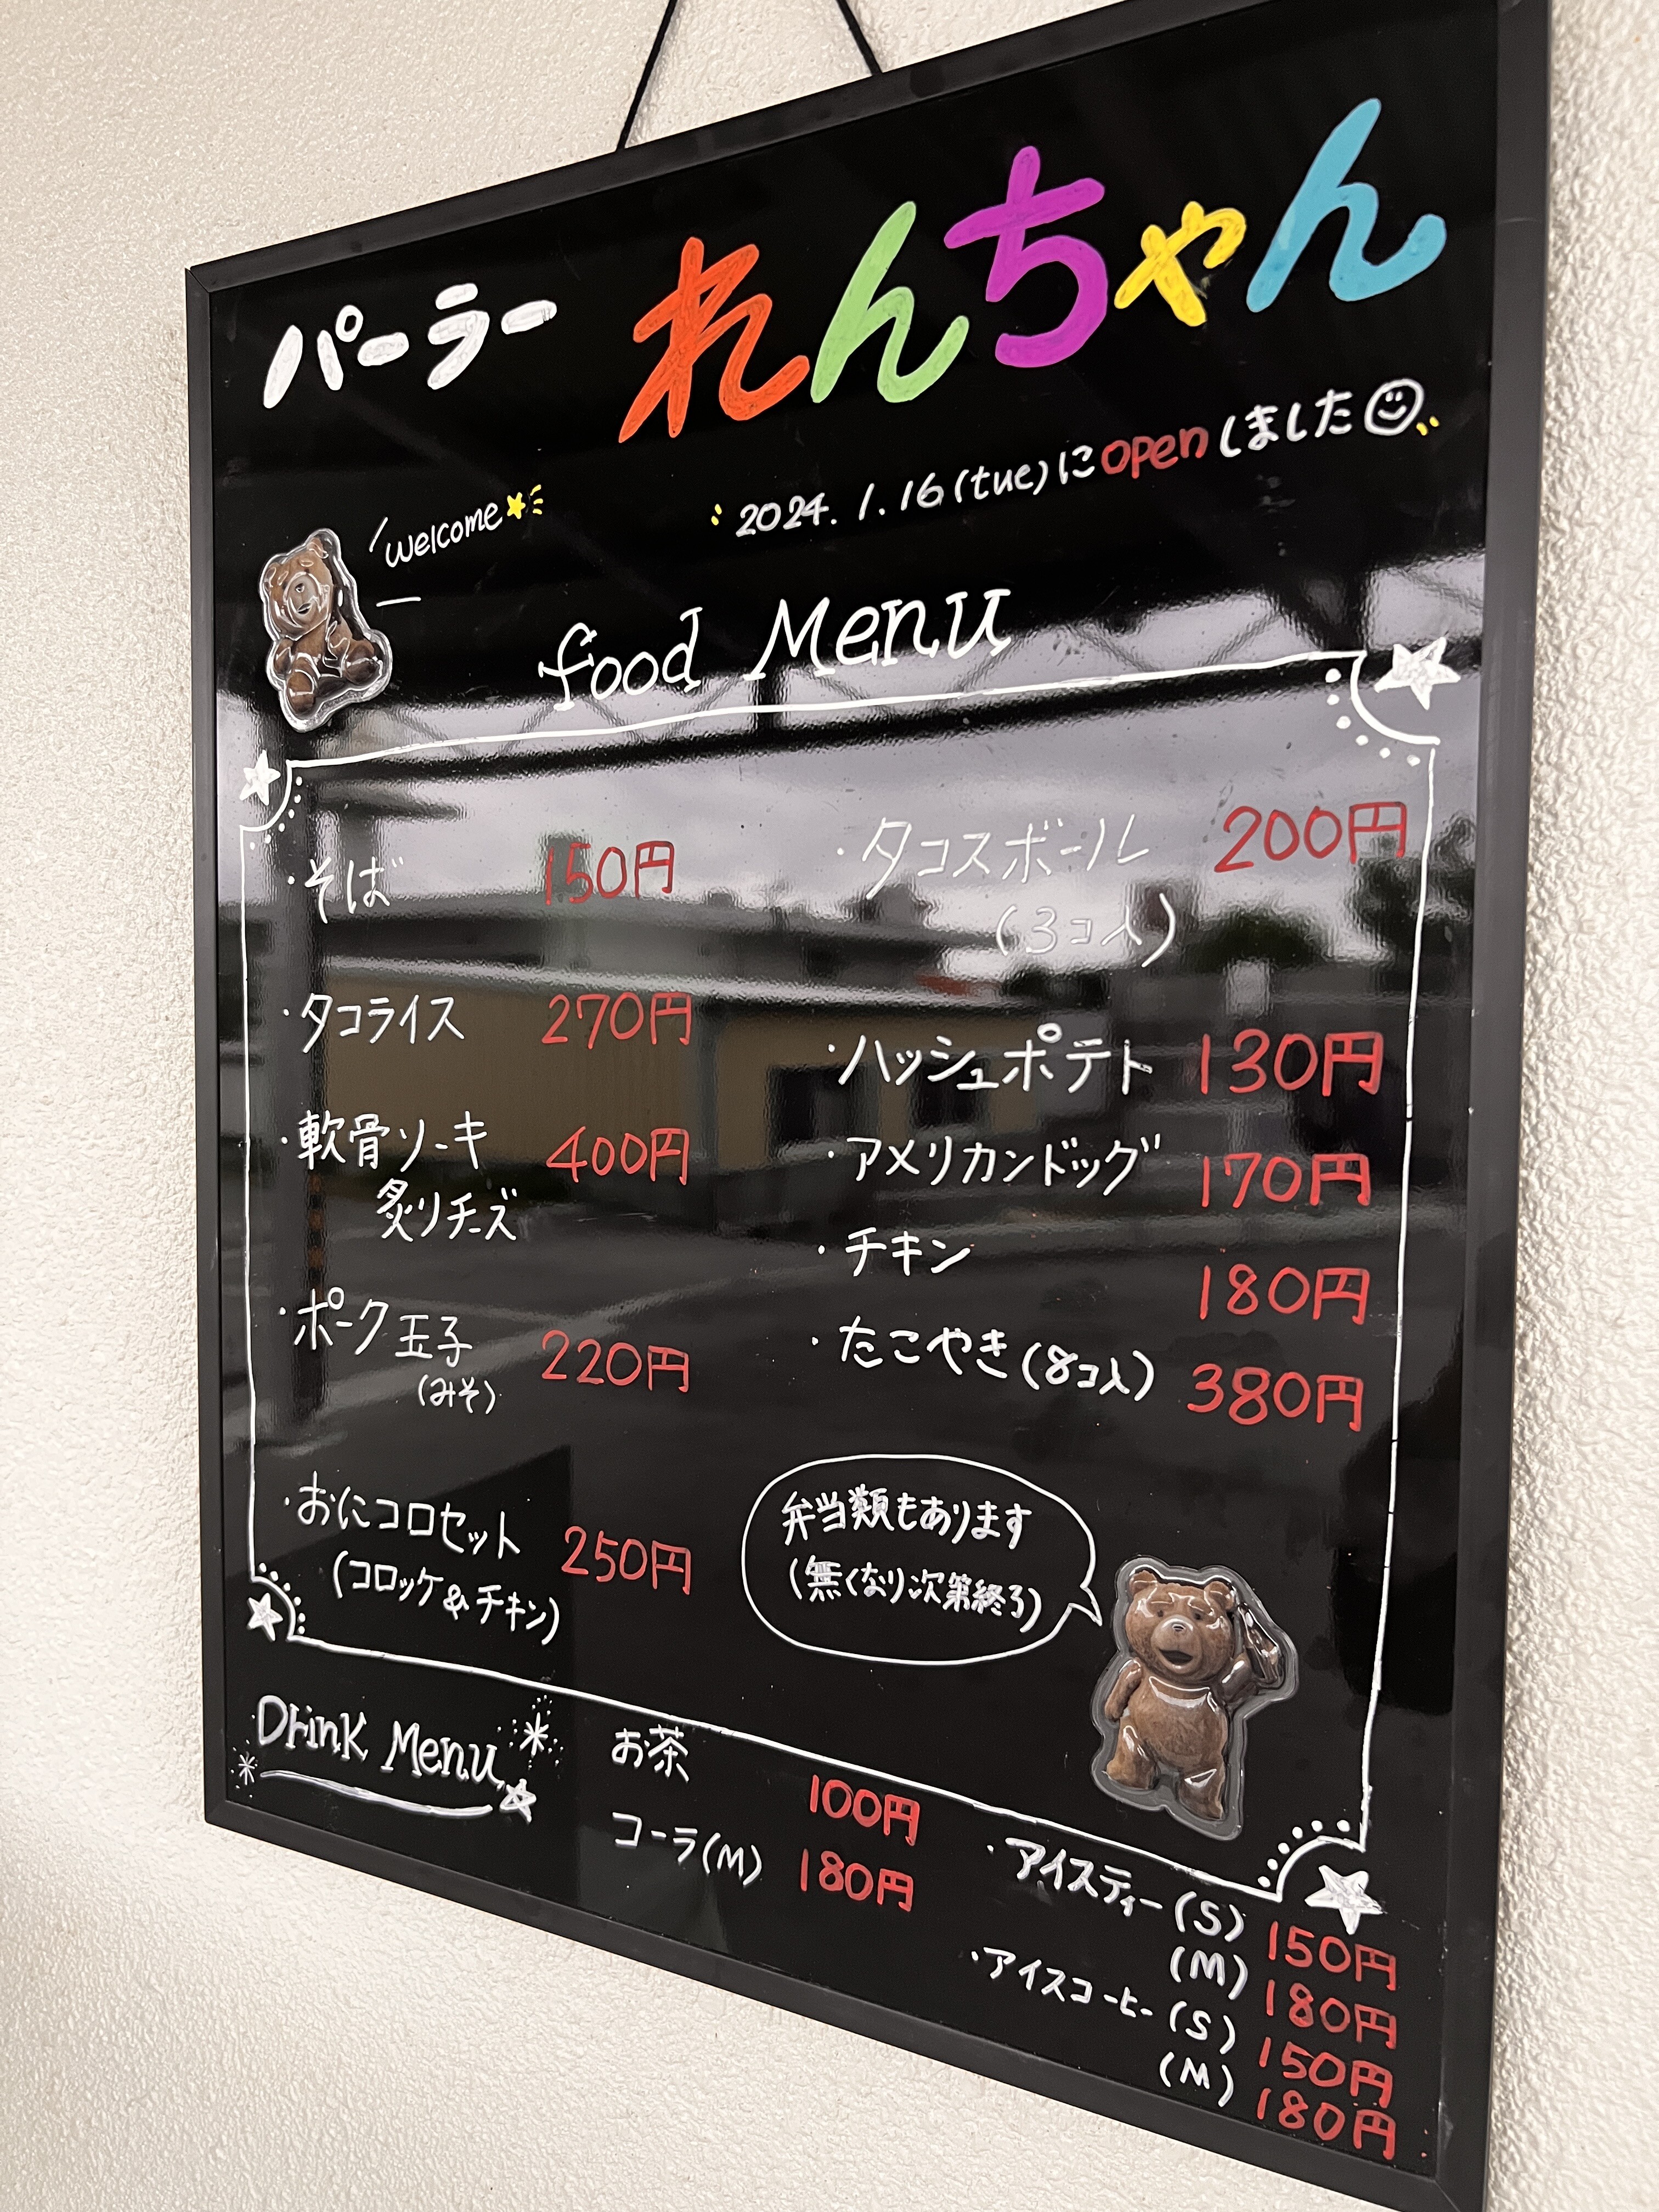 パーラー れんちゃん
2024.1.16(tue)にopenしました
welcome
food Menu
・そば 150円
・タコライス 270円
・軟骨ソーキ 400円
炙りチーズ
・ポーク玉子 220円
(みそ)
・おにコロセット 250円
(コロッケ&チキン)
・タコスボール 200円
(3コ入)
・ハッシュポテト 130円
・アメリカンドッグ 170円
・チキン 180円
・たこやき(8コ入) 380円
弁当類もあります
(無くなり次第終了)
Drink Menu
お茶 100円
コーラ(M) 180円
・アイスティー(S) 150円
(M) 180円
・アイスコーヒー(S) 150円
(M) 180円